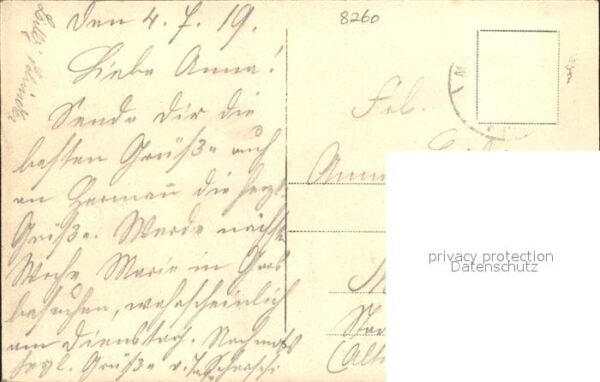 den 4.7.19.
8260
Liebe Anna!
Sende Dir die
besten Grüße auch
an Hermann die herzl.
Grüße. Werde nächste
Woche Marie in
besuchen, wahrscheinlich
am Dienstag. Nochmals
herzl. Grüße v.
Frl.
Anna
privacy protection
Datenschutz